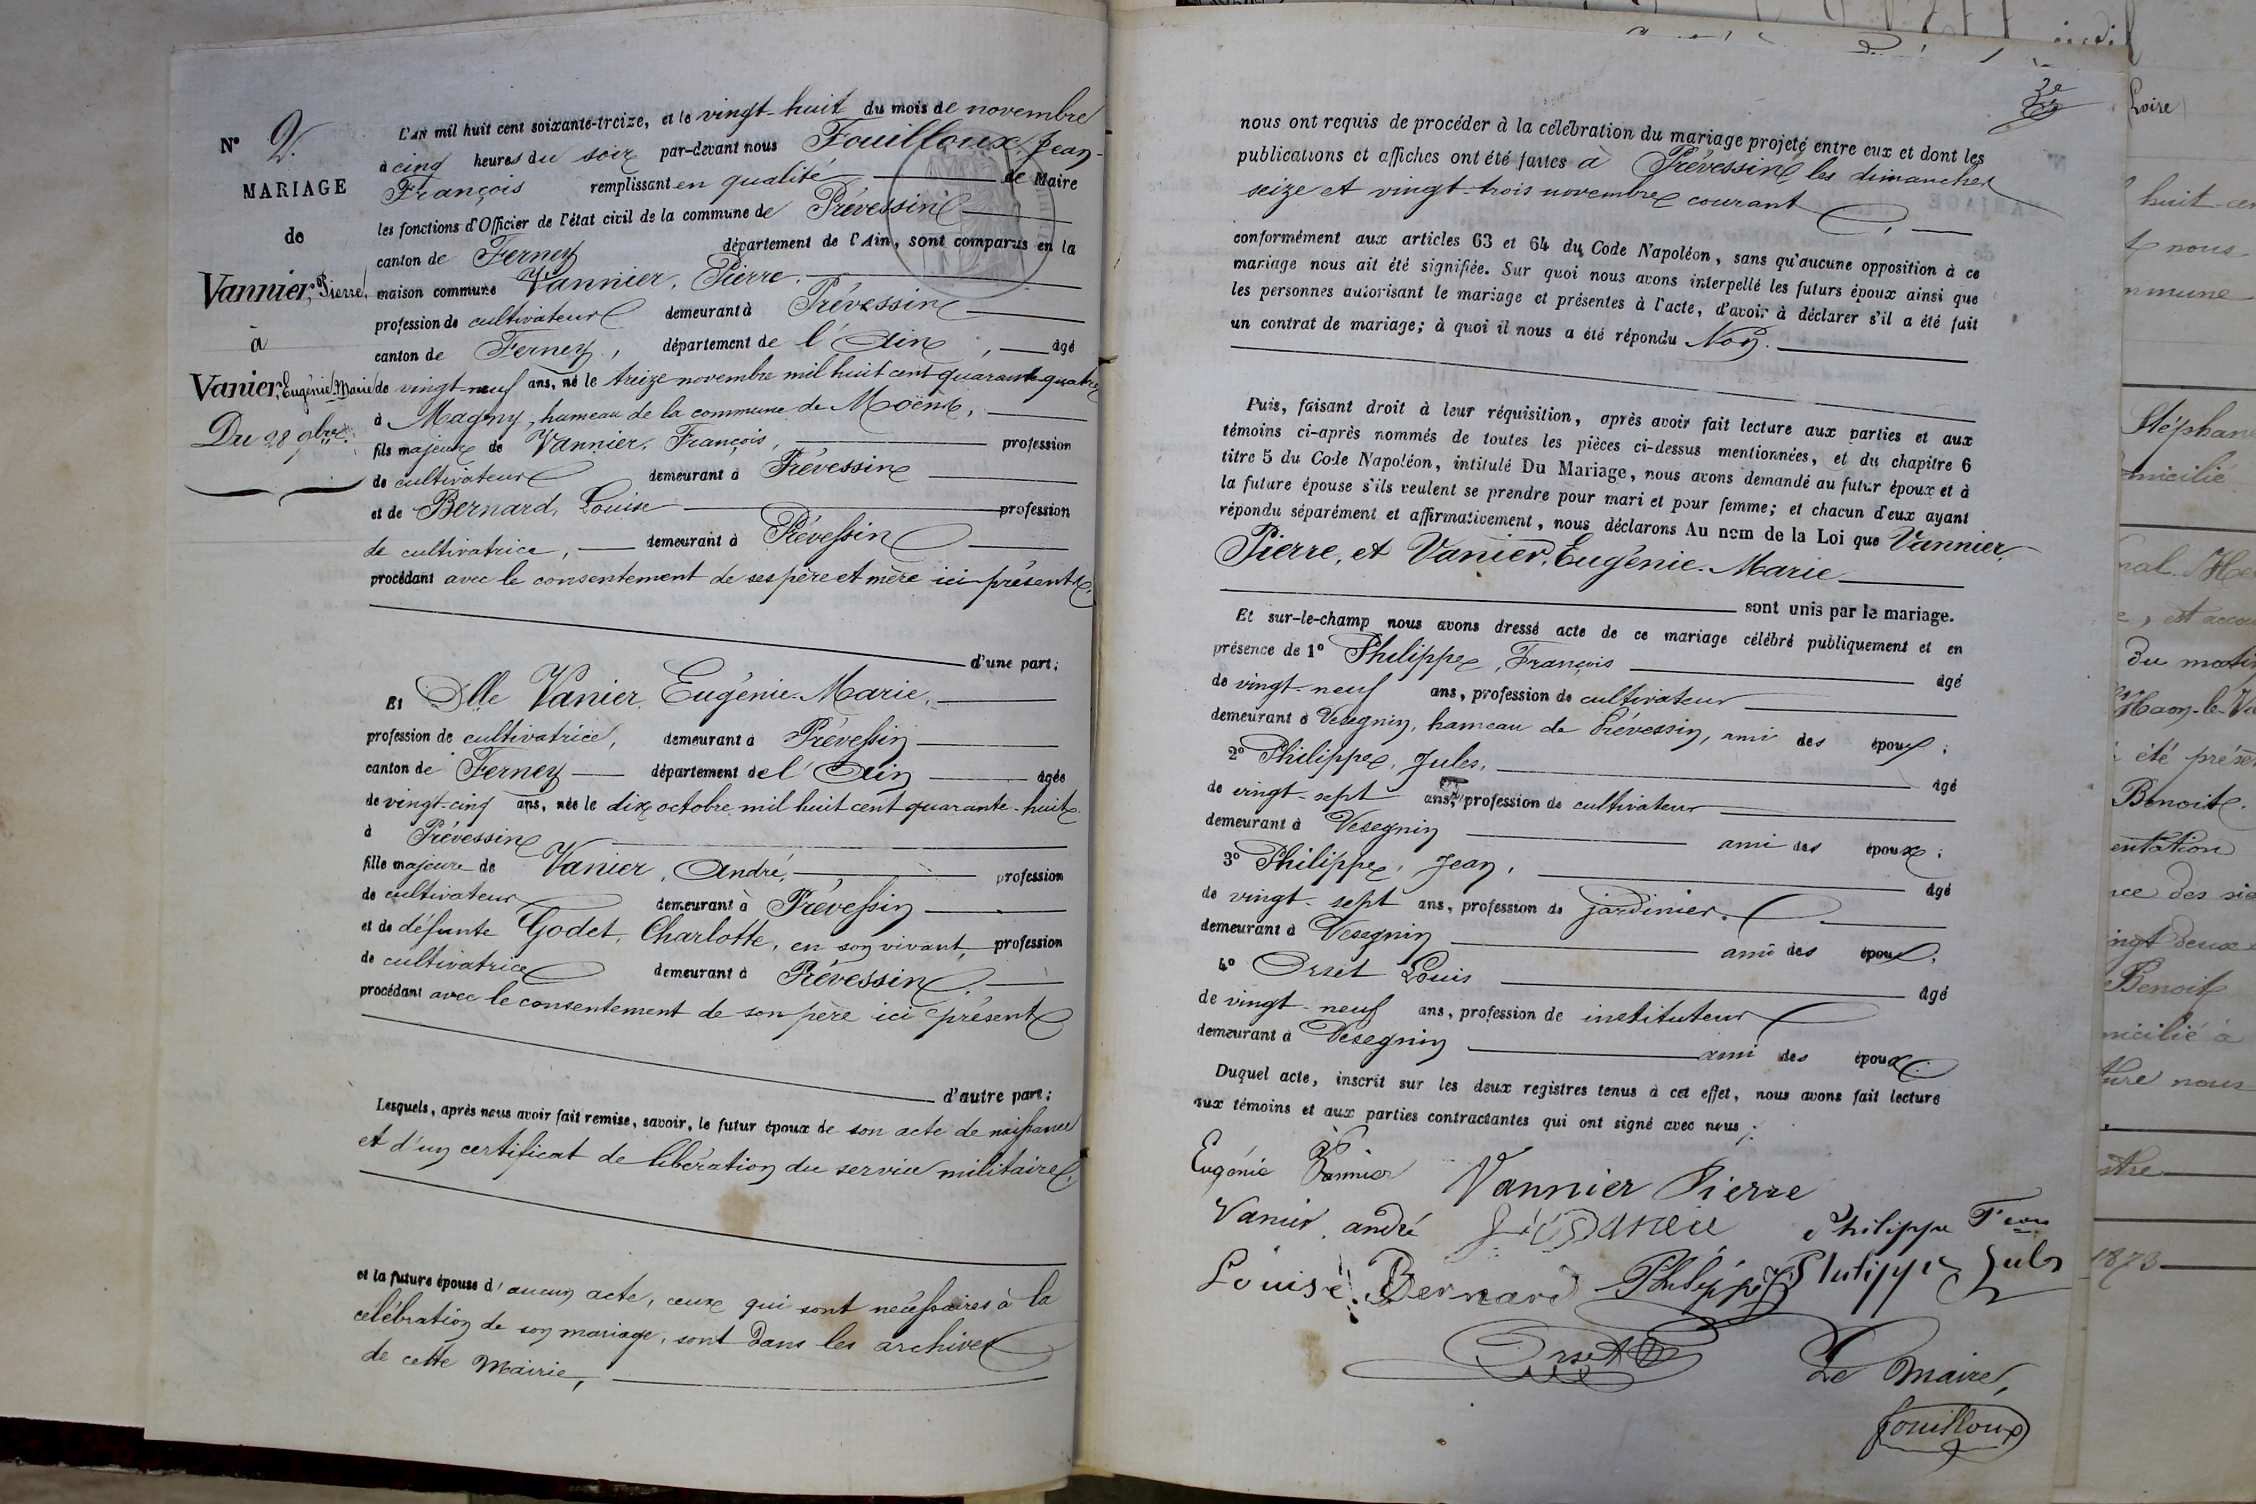 N° 2.
MARIAGE
de
Vannier, Pierre,
à
Vanier, Eugénie-Marie
Du 28 9bre.
L'AN mil huit cent soixante-treize, et le vingt-huit du mois de novembre
à cinq heures du soir par-devant nous Fouilloux, Jean-
François remplissant en qualité de Maire
les fonctions d'Officier de l'état civil de la commune de Prévessin
canton de Ferney département de l'Ain, sont comparus en la
maison commune Vannier, Pierre,
profession de cultivateur demeurant à Prévessin
canton de Ferney, département de l'Ain, âgé
de vingt-neuf ans, né le treize novembre mil huit cent quarante-quatre
à Magny, hameau de la commune de Moëns,
fils majeur de Vannier, François, profession
de cultivateur demeurant à Prévessin
et de Bernard, Louise profession
de cultivatrice, demeurant à Prévessin
procédant avec le consentement de ses père et mère ici présents,
d'une part;
Et Dlle Vanier, Eugénie-Marie,
profession de cultivatrice, demeurant à Prévessin
canton de Ferney département de l'Ain âgée
de vingt-cinq ans, née le dix octobre mil huit cent quarante-huit
à Prévessin
fille majeure de Vanier, André, profession
de cultivateur demeurant à Prévessin
et de défunte Godet, Charlotte, en son vivant, profession
de cultivatrice demeurant à Prévessin,
procédant avec le consentement de son père ici présent
d'autre part;
Lesquels, après nous avoir fait remise, savoir, le futur époux de son acte de naissance
et d'un certificat de libération du service militaire,
et la future épouse d'aucun acte, ceux qui sont nécessaires à la
célébration de son mariage, sont dans les archives
de cette Mairie,
nous ont requis de procéder à la célébration du mariage projeté entre eux et dont les
publications et affiches ont été faites à Prévessin les dimanches
seize et vingt-trois novembre courant,
conformément aux articles 63 et 64 du Code Napoléon, sans qu'aucune opposition à ce
mariage nous ait été signifiée. Sur quoi nous avons interpellé les futurs époux ainsi que
les personnes autorisant le mariage et présentes à l'acte, d'avoir à déclarer s'il a été fait
un contrat de mariage; à quoi il nous a été répondu Non.
Puis, faisant droit à leur réquisition, après avoir fait lecture aux parties et aux
témoins ci-après nommés de toutes les pièces ci-dessus mentionnées, et du chapitre 6
titre 5 du Code Napoléon, intitulé Du Mariage, nous avons demandé au futur époux et à
la future épouse s'ils veulent se prendre pour mari et pour femme; et chacun d'eux ayant
répondu séparément et affirmativement, nous déclarons Au nom de la Loi que Vannier,
Pierre, et Vanier, Eugénie-Marie
sont unis par le mariage.
Et sur-le-champ nous avons dressé acte de ce mariage célébré publiquement et en
présence de 1° Philippe, François âgé
de vingt-neuf ans, profession de cultivateur
demeurant à Vésegnin, hameau de Prévessin, ami des époux;
2° Philippe, Jules, âgé
de vingt-sept ans, profession de cultivateur
demeurant à Vesegnin ami des époux;
3° Philippe, Jean, âgé
de vingt-sept ans, profession de jardinier.
demeurant à Vesegnin ami des époux,
4° Orset Louis âgé
de vingt-neuf ans, profession de instituteur
demeurant à Vesegnin ami des époux.
Duquel acte, inscrit sur les deux registres tenus à cet effet, nous avons fait lecture
aux témoins et aux parties contractantes qui ont signé avec nous;
Eugénie Vannier Vannier Pierre
Vanier andré Philippe
Louise Bernard Philippe Philippe Jules
Orset
Le Maire,
Fouilloux
Loire
huit
nous
Stéphane
été
Benoite
des
Benoit
nous
1873